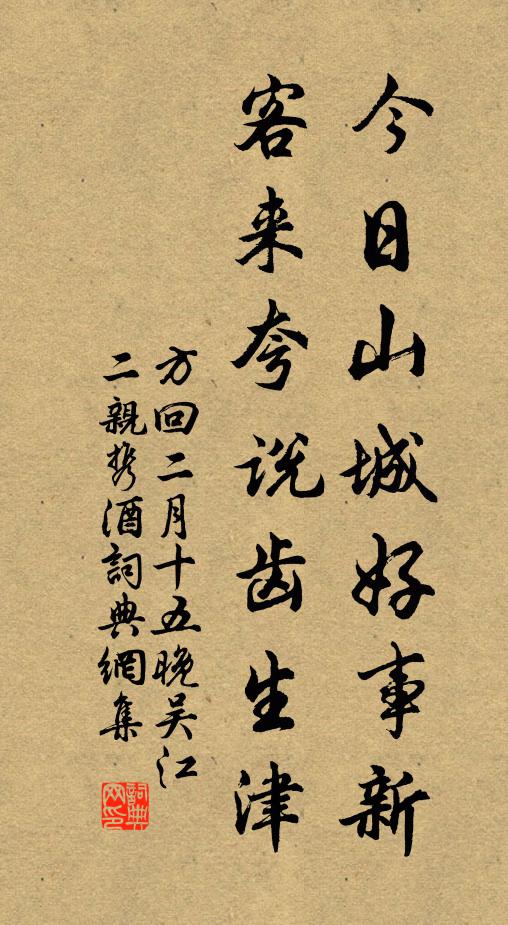 今日山城好事新
客来夸说齿生津
方回二月十五晚吴江
二親携酒詞典網集
詞典网印